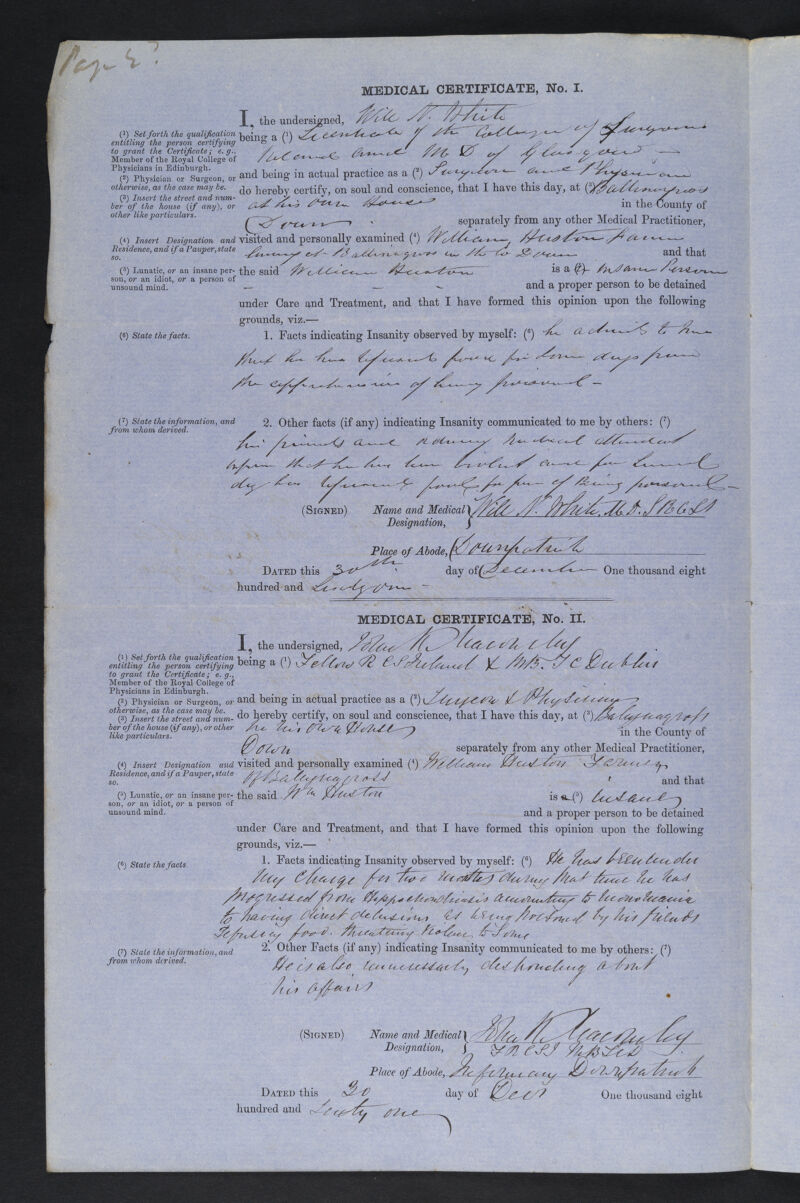 Page 2?
MEDICAL CERTIFICATE, No. I.
I, the undersigned, Will N. White
(1) Set forth the qualification entitling the person certifying to grant the Certificate; e. g., Member of the Royal College of Physicians in Edinburgh.
being a (1) Licentiate of the College of Surgeons
Ireland and M D of Glasgow
(2) Physician or Surgeon, or otherwise, as the case may be.
and being in actual practice as a (2) Surgeon and Physician
(3) Insert the street and number of the house (if any), or other like particulars.
do hereby certify, on soul and conscience, that I have this day, at (3)
at his own House in the County of
Down separately from any other Medical Practitioner,
(4) Insert Designation and Residence, and if a Pauper, state so.
visited and personally examined (4) William Huston Farmer
living at in the Co Down and that
(5) Lunatic, or an insane person, or an idiot, or a person of unsound mind.
the said William Huston is a (5) Insane Person
and a proper person to be detained
under Care and Treatment, and that I have formed this opinion upon the following
grounds, viz.—
(6) State the facts.
1. Facts indicating Insanity observed by myself: (6) he admits to me
that he has refused food for some days from
the apprehension of being poisoned –
(7) State the information, and from whom derived.
2. Other facts (if any) indicating Insanity communicated to me by others: (7)
his friends and ordinary medical attendant
that he has been violent and for several
days has refused food for fear of being poisoned –
(SIGNED) Name and Medical Designation, Will N. White. M.D.
Place of Abode, Downpatrick
DATED this 30th day of December One thousand eight
hundred and Sixty one –
MEDICAL CERTIFICATE, No. II.
I, the undersigned, John K
(1) Set forth the qualification entitling the person certifying to grant the Certificate; e. g., Member of the Royal College of Physicians in Edinburgh.
being a (1) Fellow R C S Ireland & MB. T C Dublin
(2) Physician or Surgeon, or otherwise, as the case may be.
and being in actual practice as a (2) Surgeon & Physician
(3) Insert the street and number of the house (if any), or other like particulars.
do hereby certify, on soul and conscience, that I have this day, at (3) Ballynagross
in his own House in the County of
Down separately from any other Medical Practitioner,
(4) Insert Designation and Residence, and if a Pauper, state so.
visited and personally examined (4) William Huston Farmer
of Ballynagross and that
(5) Lunatic, or an insane person, or an idiot, or a person of unsound mind.
the said Wm Huston is a (5) insane
and a proper person to be detained
under Care and Treatment, and that I have formed this opinion upon the following
grounds, viz.—
(6) State the facts
1. Facts indicating Insanity observed by myself: (6) He has been under
my charge for two months during that time he has
progressed from Hypochondriasis amounting to monomania
to having direct delusions as being poisoned by his friends
refusing food. threatening violence to some
(7) State the information, and from whom derived.
2. Other Facts (if any) indicating Insanity communicated to me by others: (7)
He is also unnecessarily desponding about
his affairs
(SIGNED) Name and Medical Designation, John K
F R C S I
Place of Abode, Infirmary Downpatrick
DATED this 30 day of Decr One thousand eight
hundred and Sixty one